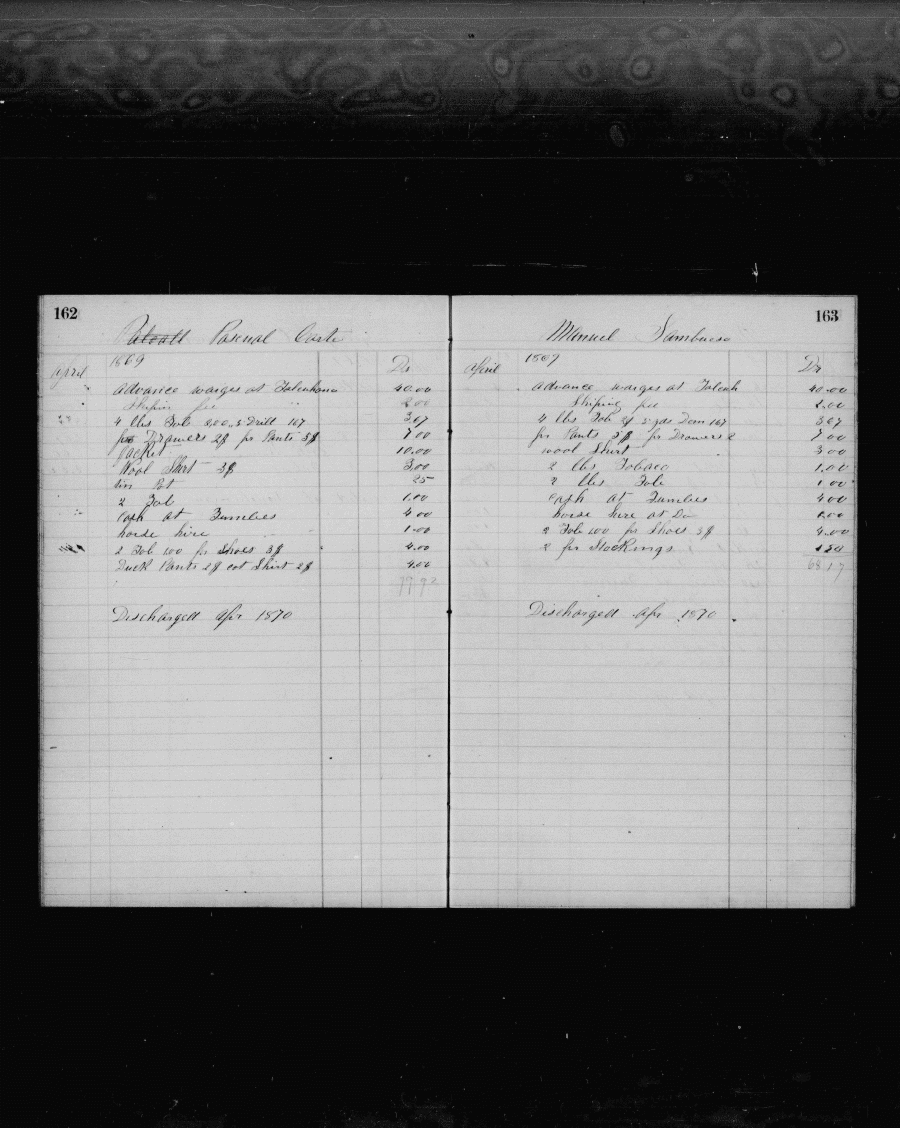 162
Pascual Coste
1869
April
Dr
Advance warges at Talcahano 40.00
Shipin fee 2.00
4 lbs Tob 2.00, 5 Drill 167 3.67
pr Drawers 2$ pr Pants 5$ 7.00
Jacket 10.00
Wool Shirt 3$ 3.00
tin Pot 25
2 Tob 1.00
Cash at Tumbes 4.00
horse hire 1.00
2 Tob 100 pr Shoes 3$ 4.00
Duck Pants 2$ cot Shirt 2$ 4.00
79.92
Discharged Apr 1870
163
Manuel Sambueso
1869
April
Dr
Advance warges at Talcah 40.00
Shiping fee 2.00
4 lbs Tob 2$ 5 yds Dem 167 3.67
pr Pants 5$ pr Drawers 2 7.00
wool Shirt 3.00
2 lbs Tobaco 1.00
2 lbs Tob 1.00
Cash at Tumbes 4.00
horse hire at Do 1.00
2 Tob 100 pr Shoes 3$ 4.00
2 pr Stockings 1.50
68.17
Discharged Apr 1870